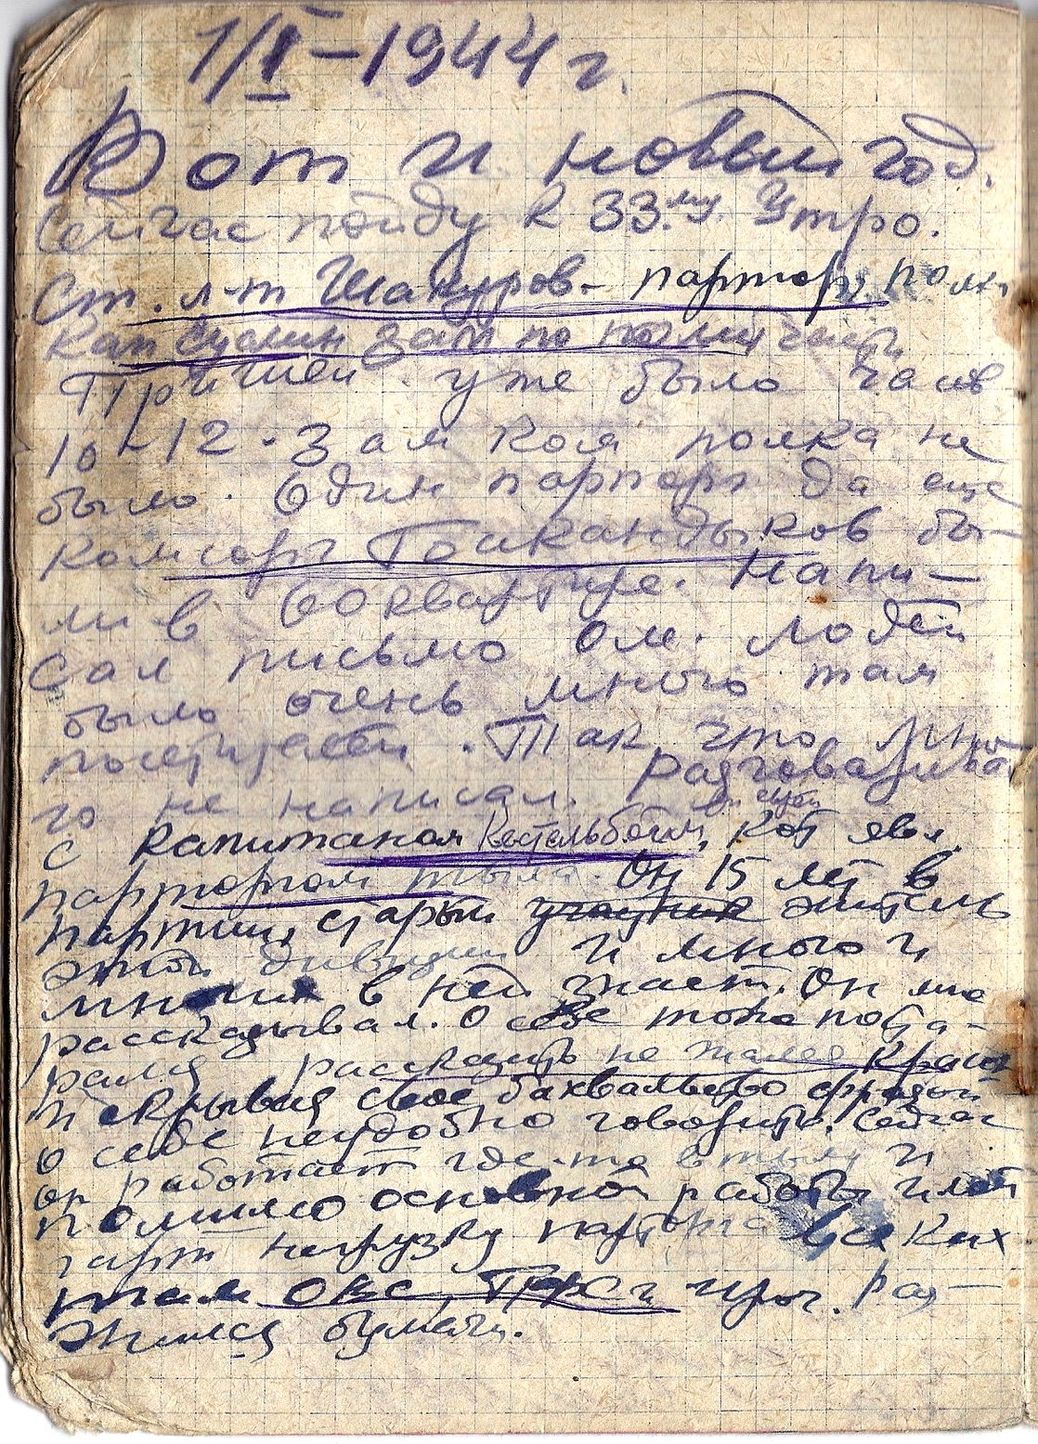 1/I – 1944 г.
Вот и новый год.
Сейчас пойду к 33му. Утро.
Ст. л-т Шакуров – парторг полка
Кап Суслин зам по полит части
Пришел уже было часов
10–12. Зам ком полка не
было. Один парторг да еще
комсорг бы-
ли в квартире. Напи-
сал письмо Оле. Людей
было очень много там
. Так что мно-
го не написал. Разговаривал
с капитаном кот явл.
парторгом тыла. Он 15 лет в
партии, старый участник житель
этой дивизии и много и
многих в ней знает. Он мне
рассказывал. О себе тоже поста-
рался рассказать не жалея красок
и скрывая свое бахвальство фразой
о себе неудобно говорить. Сейчас
он работает где-то в тылу и
помимо основной работы
нагрузку парторга в каких
там ОВС, и проч. Раз-
жился бумаги.